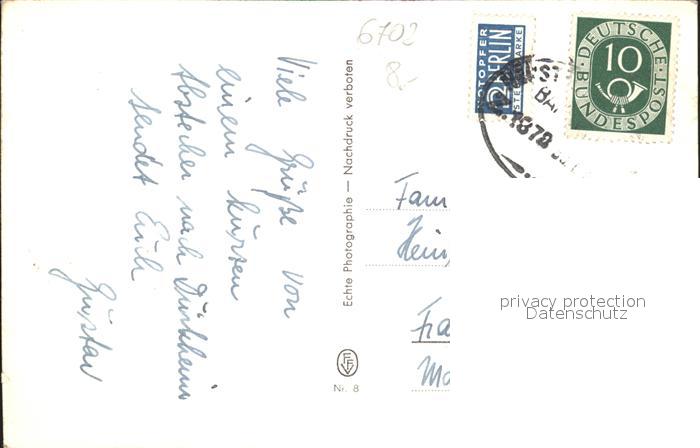 6702
8.-
Viele Grüße von
einem kurzen
Abstecher nach Dürkheim
sendet Euch
Gustav
Echte Photographie — Nachdruck verboten
Nr. 8
NOTOPFER
2 BERLIN
STEUERMARKE
DEUTSCHE
10
BUNDESPOST
1878
Fam
Hein
Fra
privacy protection
Datenschutz